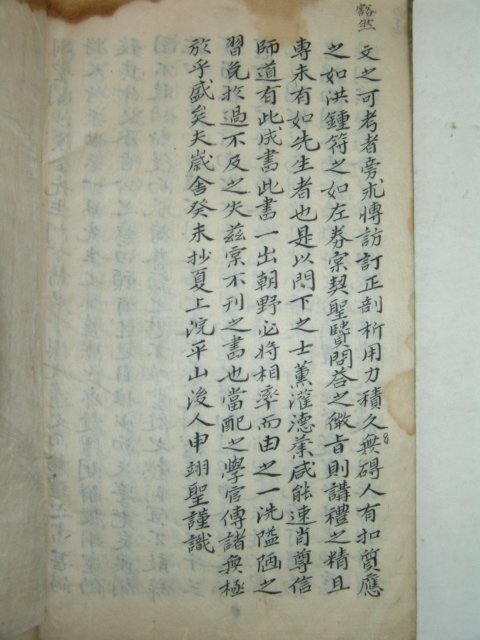 豁然
文之可考者旁求博訪訂正剖析用力積久無碍人有扣質應
之如洪鍾符之如左券宲契聖賢問答之微旨則講禮之精且
專未有如先生者也是以問下之士薰灌德業咸能速肖尊信
師道有此成書此書一出朝野必將相率而由之一洗隘陋之
習免於過不及之失玆宲不刊之書也當配之學官傳諸無極
於乎盛矣夫歲舍癸未抄夏上浣平山後人申翊聖謹識